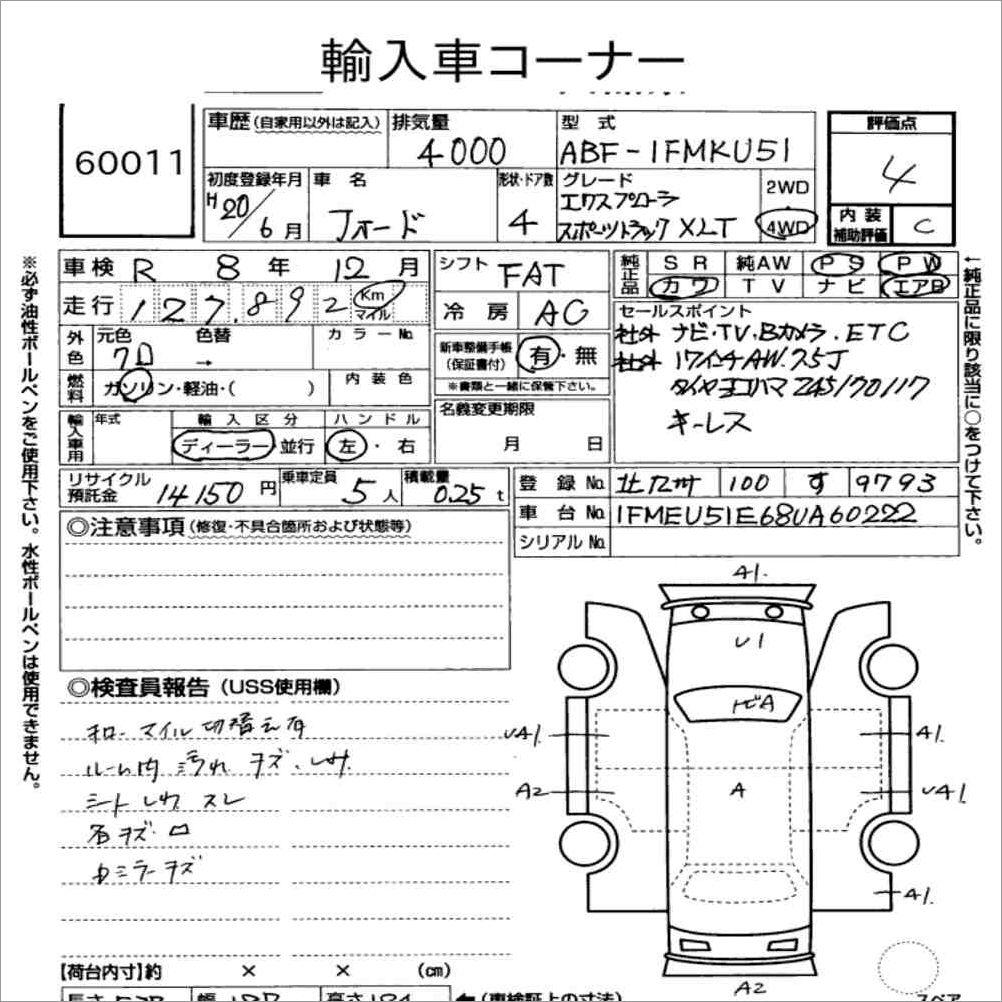 輸入車コーナー
60011
車歴 (自家用以外は記入)
排気量
4000
型式
ABF-1FMKU51
評価点
4
初度登録年月
H20/6月
車名
フォード
形状・ドア数
4
グレード
エクスプローラ
スポーツトラック XLT
2WD
4WD
内装
補助評価
C
車検 R 8年 12月
シフト FAT
純正品
SR 純AW PS PW
カワ TV ナビ エアB
走行 127,892 Km マイル
冷房 AC
セールスポイント
社外 ナビ・TV・Bカメラ・ETC
社外 17インチAW.
タイヤヨコハマ 245/70/17
キーレス
外色
元色 色替 カラーNo.
クロ →
新車整備手帳
(保証書付)
有・無
※書類と一緒に保管下さい。
燃料 ガソリン・軽油・( )
内装色
名義変更期限
月 日
輸入車用
年式
輸入区分
ディーラー・並行
ハンドル
左・右
リサイクル
預託金
14150円
乗車定員
5人
積載量
0.25t
登録No. 北九州 100 す 9793
車台No. 1FMEU51E68UA60222
シリアルNo.
◎注意事項 (修復・不具合箇所および状態等)
◎検査員報告 (USS使用欄)
マイル切替え有
ルーム内 汚れ キズ・
シート スレ
石キズ
中ミラーキズ
A1.
U1
トビA
UA1.
A1.
A2
A
UA1.
A1.
A2
【荷台内寸】約 × × (cm)
長さ
幅
高さ
(車検証上の寸法)
スペア
※必ず油性ボールペンをご使用下さい。水性ボールペンは使用できません。
↑純正品に限り該当に○をつけて下さい。